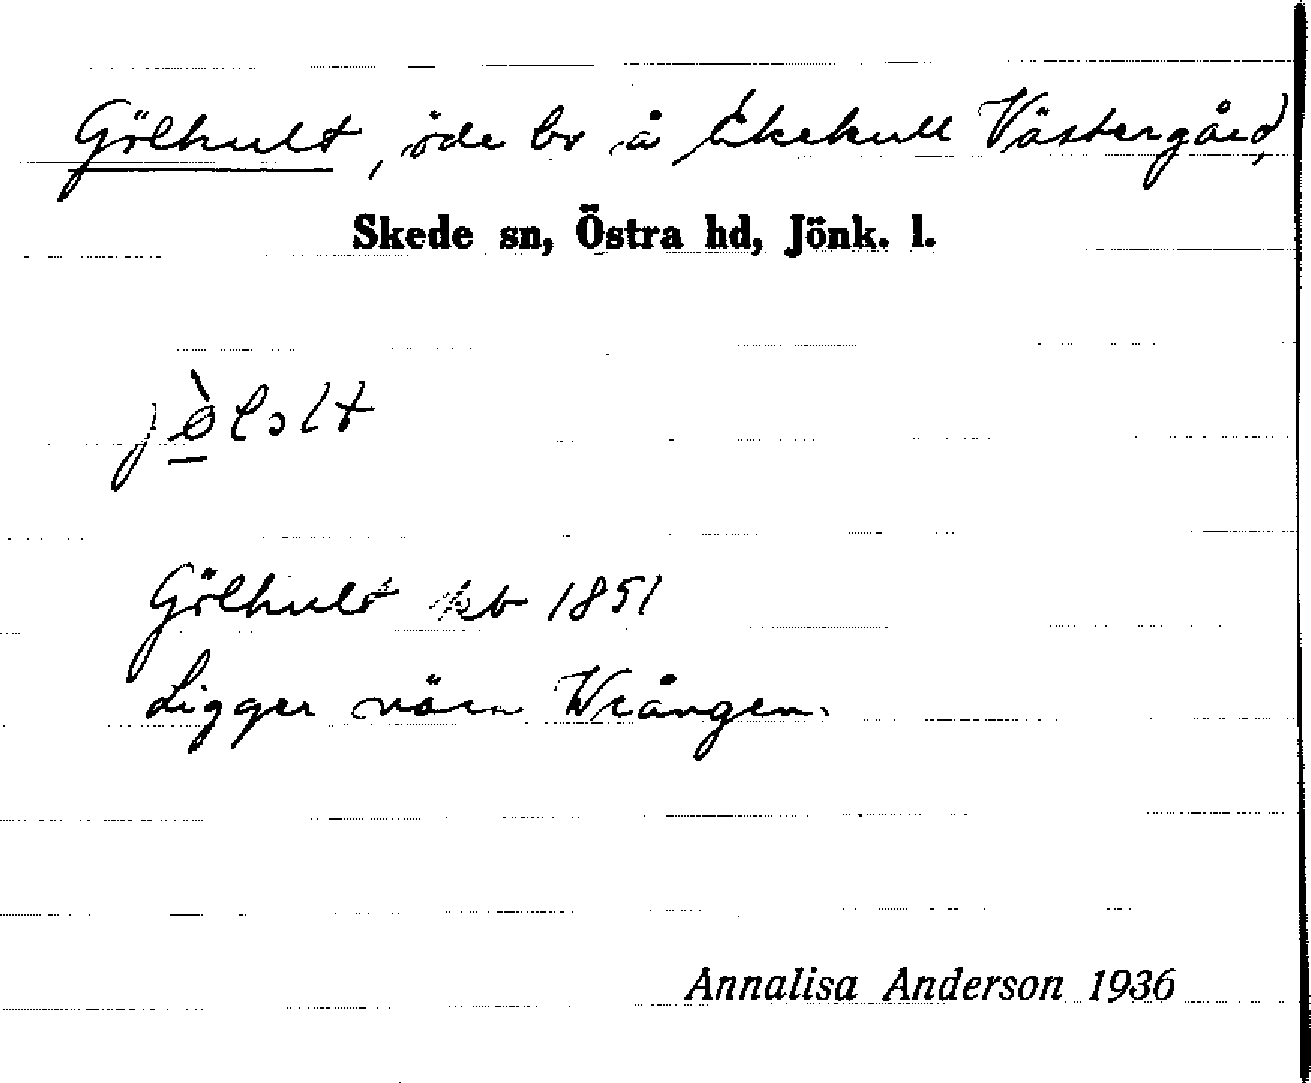 Gölhult, öde br å Åkekull Västergård,
Skede sn, Östra hd, Jönk. l.
jø̀lɔlt
Gölhult kb 1851
Ligger nära Wrången.
Annalisa Anderson 1936